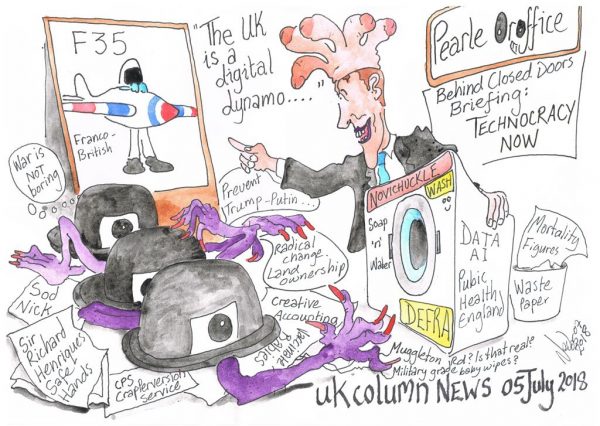 F35
Franco-
British
"The UK
is a
digital
dynamo...."
Pearle Oroffice
Behind Closed Doors
Briefing:
TECHNOCRACY
NOW
War is
not
boring
Prevent
Trump-Putin...
Radical
change
Land
ownership
Creative
Accounting
NOVICHUCKLE
WASH
Soap
'n'
Water
DATA
AI
Pubic
Health
England
DEFRA
Mortality
Figures
Waste
Paper
Sod
Nick
Sir
Richard
Henriques
Safe
Hands
CPS
Craplerversion
Service
Muggleton Red? Is that real?
Military grade baby wipes?
UK Column NEWS 05 July 2018